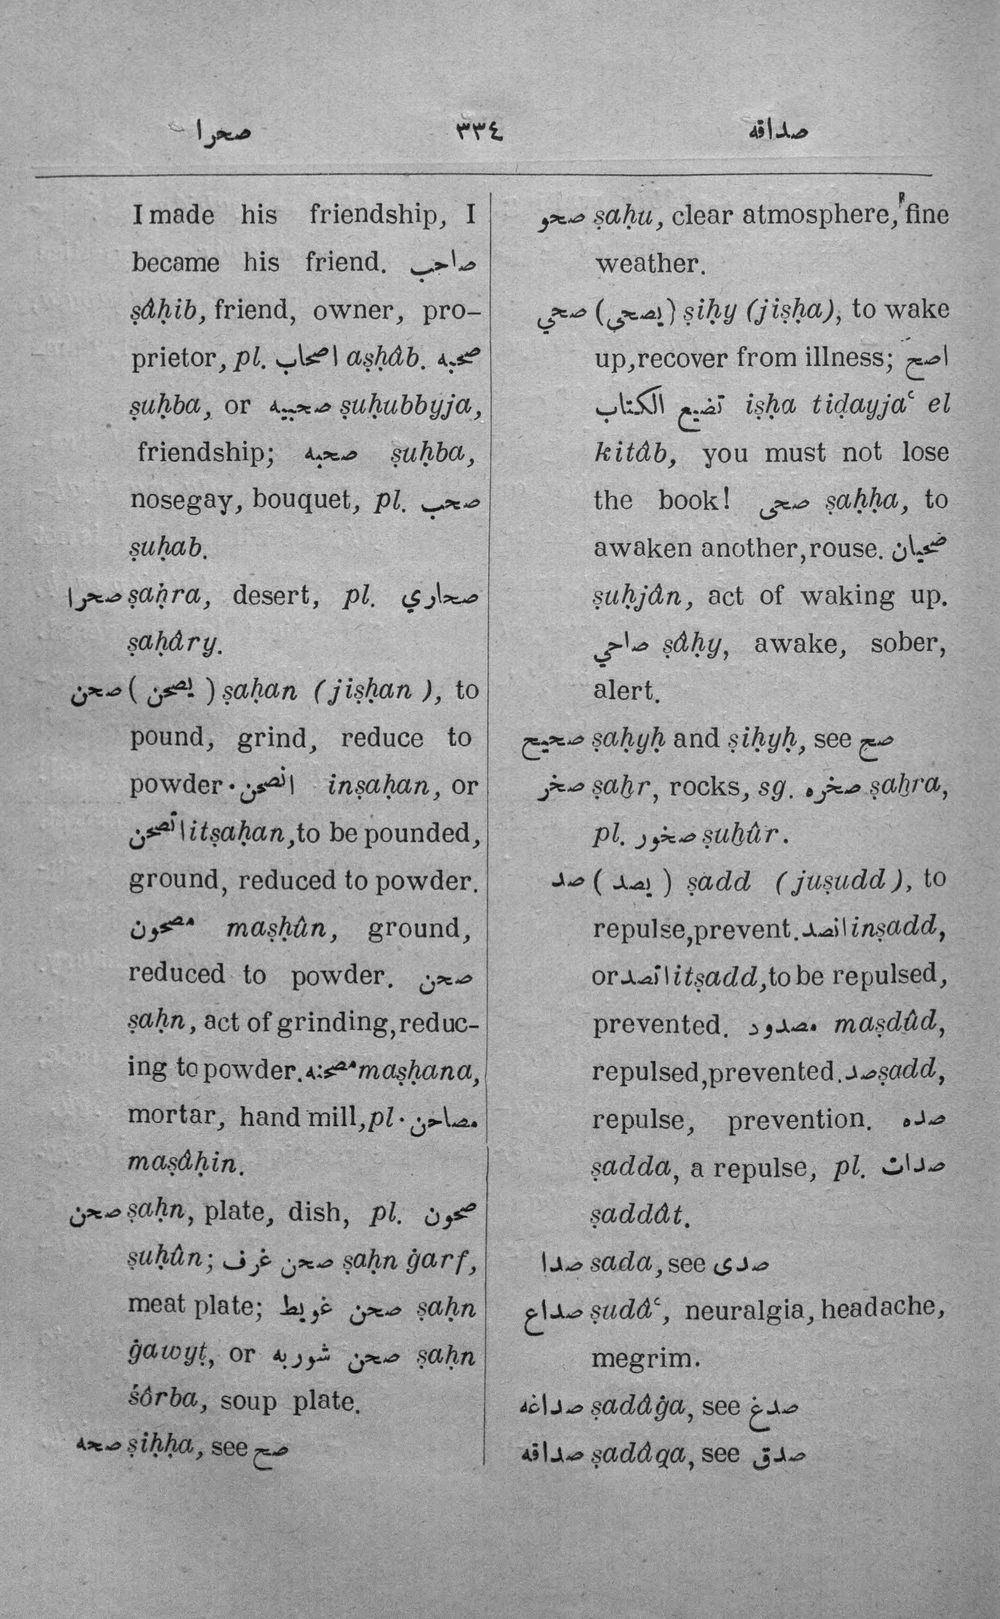 صحرا ٣٣٤ صداقه
I made his friendship, I
became his friend. صاحب
ṣâḥib, friend, owner, pro-
prietor, pl. اصحاب aṣḥâb. صحبه
ṣuḥba, or صحبيه ṣuḥubbyja,
friendship; صحبه ṣuḥba,
nosegay, bouquet, pl. صحب
ṣuḥab.
صحرا ṣaḥra, desert, pl. صحاري
ṣaḥâry.
صحن (يصحن) ṣaḥan (jiṣḥan), to
pound, grind, reduce to
powder. انصحن inṣaḥan, or
اتصحن itṣaḥan, to be pounded,
ground, reduced to powder.
مصحون maṣḥûn, ground,
reduced to powder. صحن
ṣaḥn, act of grinding, reduc-
ing to powder. مصحنه maṣḥana,
mortar, hand mill, pl. مصاحن
maṣâḥin.
صحن ṣaḥn, plate, dish, pl. صحون
ṣuḥûn; صحن غرف ṣaḥn ġarf,
meat plate; صحن غويط ṣaḥn
ġawyṭ, or صحن شوربه ṣaḥn
śôrba, soup plate.
صحه ṣiḥḥa, see صح
صحو ṣaḥu, clear atmosphere, fine
weather.
صحي (يصحى) ṣiḥy (jiṣḥa), to wake
up, recover from illness; اصح
تضيع الكتاب iṣḥa tiḍayjaʿ el
kitâb, you must not lose
the book! صحى ṣaḥḥa, to
awaken another, rouse. صحيان
ṣuḥjân, act of waking up.
صاحي ṣâḥy, awake, sober,
alert.
صحيح ṣaḥyḥ and ṣiḥyḥ, see صح
صخر ṣaḫr, rocks, sg. صخره ṣaḫra,
pl. صخور ṣuḫûr.
صد (يصد) ṣadd (juṣudd), to
repulse, prevent. انصد inṣadd,
or اتصد itṣadd, to be repulsed,
prevented. مصدود maṣdûd,
repulsed, prevented. صد ṣadd,
repulse, prevention. صده
ṣadda, a repulse, pl. صدات
ṣaddât.
صدا sada, see صدى
صداع ṣudâʿ, neuralgia, headache,
megrim.
صداغه ṣadâġa, see صدغ
صداقه ṣadâqa, see صدق